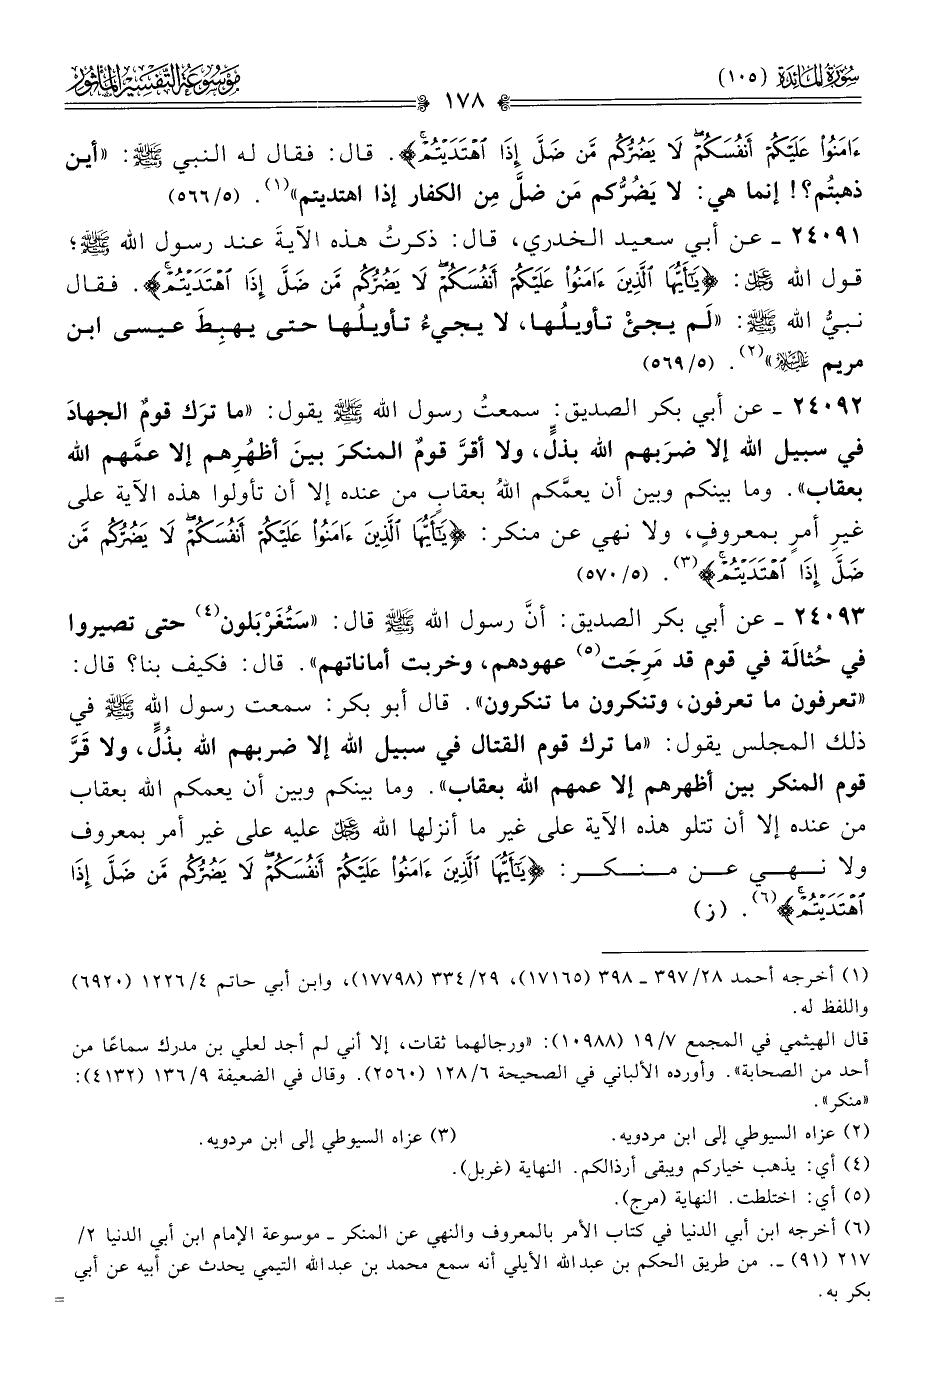 سُورَةُ المَائِدَةِ (١٠٥)
مَوْسُوعَة التَّفْسِيرِ المَأْثُور
١٧٨
ءَامَنُوا۟ عَلَيْكُمْ أَنفُسَكُمْ ۖ لَا يَضُرُّكُم مَّن ضَلَّ إِذَا ٱهْتَدَيْتُمْ ۚ﴾. قال: فقال له النبي ﷺ: «أين
ذهبتُم؟! إنما هي: لا يَضُرُّكم مَن ضلَّ مِن الكفار إذا اهتديتم»(١). (٥/٥٦٦)
٢٤٠٩١ ـ عن أبي سعيد الخدري، قال: ذكرتُ هذه الآيةَ عند رسول الله ﷺ؛
قول الله ﷿: ﴿يَـٰٓأَيُّهَا ٱلَّذِينَ ءَامَنُوا۟ عَلَيْكُمْ أَنفُسَكُمْ ۖ لَا يَضُرُّكُم مَّن ضَلَّ إِذَا ٱهْتَدَيْتُمْ ۚ﴾. فقال
نبيُّ الله ﷺ: «لَم يجئْ تأويلُها، لا يجيءُ تأويلُها حتى يهبِطَ عيسى ابن
مريم عليه السلام»(٢). (٥/٥٦٩)
٢٤٠٩٢ ـ عن أبي بكر الصديق: سمعتُ رسول الله ﷺ يقول: «ما ترَك قومٌ الجهادَ
في سبيل الله إلا ضرَبهم الله بذلٍّ، ولا أقرَّ قومٌ المنكرَ بينَ أظهُرِهم إلا عمَّهم الله
بعقاب». وما بينكم وبين أن يعمَّكم اللهُ بعقابٍ من عنده إلا أن تأولوا هذه الآية على
غيرِ أمرٍ بمعروفٍ، ولا نهي عن منكر: ﴿يَـٰٓأَيُّهَا ٱلَّذِينَ ءَامَنُوا۟ عَلَيْكُمْ أَنفُسَكُمْ ۖ لَا يَضُرُّكُم مَّن
ضَلَّ إِذَا ٱهْتَدَيْتُمْ ۚ﴾(٣). (٥/٥٧٠)
٢٤٠٩٣ ـ عن أبي بكر الصديق: أنَّ رسول الله ﷺ قال: «سَتُغَرْبَلون(٤) حتى تصيروا
في حُثالَة في قوم قد مَرِجَت(٥) عهودهم، وخربت أماناتهم». قال: فكيف بنا؟ قال:
«تعرفون ما تعرفون، وتنكرون ما تنكرون». قال أبو بكر: سمعت رسول الله ﷺ في
ذلك المجلس يقول: «ما ترك قوم القتال في سبيل الله إلا ضربهم الله بذُلٍّ، ولا قَرَّ
قوم المنكر بين أظهرهم إلا عمهم الله بعقاب». وما بينكم وبين أن يعمكم الله بعقاب
من عنده إلا أن تتلو هذه الآية على غير ما أنزلها الله ﷿ عليه على غير أمر بمعروف
ولا نهي عن منكر: ﴿يَـٰٓأَيُّهَا ٱلَّذِينَ ءَامَنُوا۟ عَلَيْكُمْ أَنفُسَكُمْ ۖ لَا يَضُرُّكُم مَّن ضَلَّ إِذَا
ٱهْتَدَيْتُمْ ۚ﴾(٦). (ز)
(١) أخرجه أحمد ٢٨/٣٩٧ ـ ٣٩٨ (١٧١٦٥)، ٢٩/٣٣٤ (١٧٧٩٨)، وابن أبي حاتم ٤/١٢٢٦ (٦٩٢٠)
واللفظ له.
قال الهيثمي في المجمع ٧/١٩ (١٠٩٨٨): «ورجالهما ثقات، إلا أني لم أجد لعلي بن مدرك سماعًا من
أحد من الصحابة». وأورده الألباني في الصحيحة ٦/١٢٨ (٢٥٦٠). وقال في الضعيفة ٩/١٣٦ (٤١٣٢):
«منكر».
(٢) عزاه السيوطي إلى ابن مردويه. (٣) عزاه السيوطي إلى ابن مردويه.
(٤) أي: يذهب خياركم ويبقى أرذالكم. النهاية (غربل).
(٥) أي: اختلطت. النهاية (مرج).
(٦) أخرجه ابن أبي الدنيا في كتاب الأمر بالمعروف والنهي عن المنكر ـ موسوعة الإمام ابن أبي الدنيا ٢/
٢١٧ (٩١) ـ. من طريق الحكم بن عبدالله الأيلي أنه سمع محمد بن عبدالله التيمي يحدث عن أبيه عن أبي
بكر به.
=